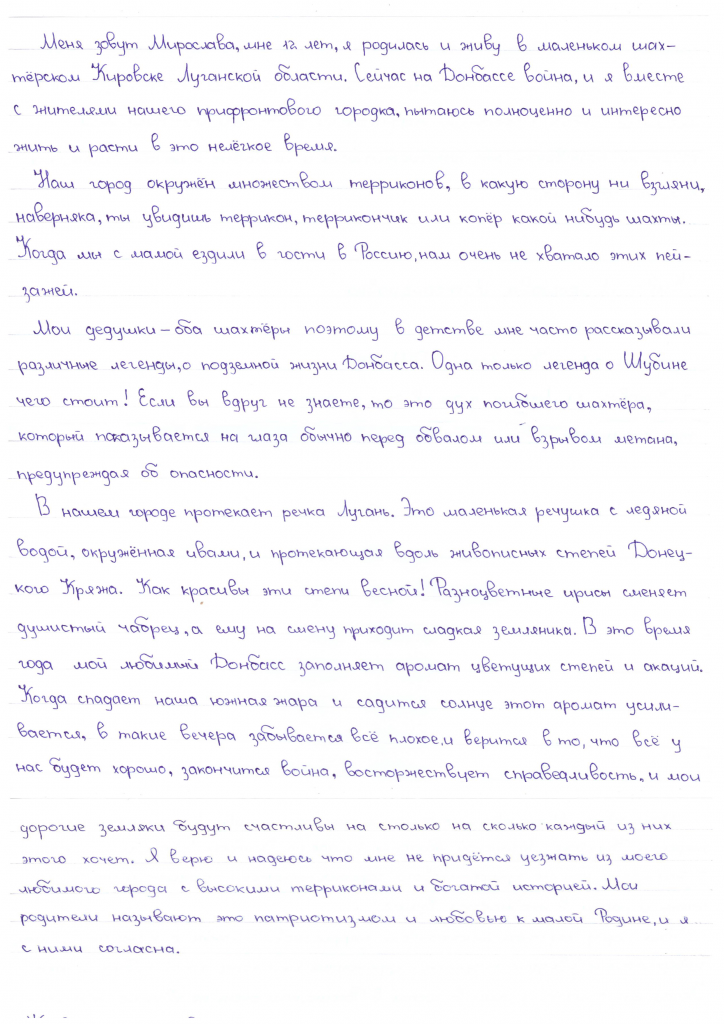 Меня зовут Мирослава, мне 12 лет, я родилась и живу в маленьком шах-
тёрском Кировске Луганской области. Сейчас на Донбассе война, и я вместе
с жителями нашего прифронтового городка, пытаюсь полноценно и интересно
жить и расти в это нелёгкое время.
Наш город окружён множеством терриконов, в какую сторону ни взгляни,
наверняка, ты увидишь террикон, террикончик или копёр какой нибудь шахты.
Когда мы с мамой ездили в гости в Россию, нам очень не хватало этих пей-
зажей.
Мои дедушки – оба шахтёры поэтому в детстве мне часто рассказывали
различные легенды, о подземной жизни Донбасса. Одна только легенда о Шубине
чего стоит! Если вы вдруг не знаете, то это дух погибшего шахтёра,
который показывается на глаза обычно перед обвалом или взрывом метана,
предупреждая об опасности.
В нашем городе протекает речка Лугань. Это маленькая речушка с ледяной
водой, окружённая ивами, и протекающая вдоль живописных степей Донец-
кого Кряжа. Как красивы эти степи весной! Разноцветные ирисы сменяет
душистый чабрец, а ему на смену приходит сладкая земляника. В это время
года мой любимый Донбасс заполняет аромат цветущих степей и акаций.
Когда спадает наша южная жара и садится солнце этот аромат усили-
вается, в такие вечера забывается всё плохое, и верится в то, что всё у
нас будет хорошо, закончится война, восторжествует справедливость, и мои
дорогие земляки будут счастливы на столько на сколько каждый из них
этого хочет. Я верю и надеюсь что мне не придётся уезжать из моего
любимого города с высокими терриконами и богатой историей. Мои
родители называют это патриотизмом и любовью к малой Родине, и я
с ними согласна.